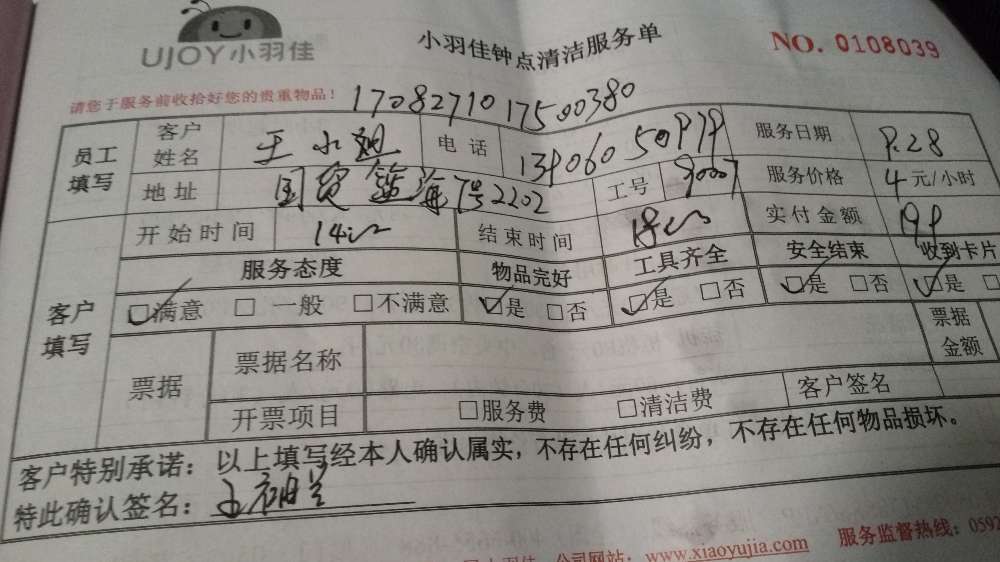 UJOY小羽佳
小羽佳钟点清洁服务单
NO. 0108039
请您于服务前收拾好您的贵重物品！
1708271017500380
员工填写 客户姓名 王小姐 电话 服务日期
地址 国贸蓝海 2202 工号 90007 服务价格 4 元/小时
客户填写 开始时间 结束时间 实付金额
服务态度 物品完好 工具齐全 安全结束 收到卡片
☑满意 □ 一般 □不满意 ☑是 □否 ☑是 □否 ☑是 □否 ☑是 □
票据 票据名称 票据金额
开票项目 □服务费 □清洁费 客户签名
客户特别承诺：以上填写经本人确认属实，不存在任何纠纷，不存在任何物品损坏。
特此确认签名：王
公司网站：www.xiaoyujia.com 服务监督热线：0592